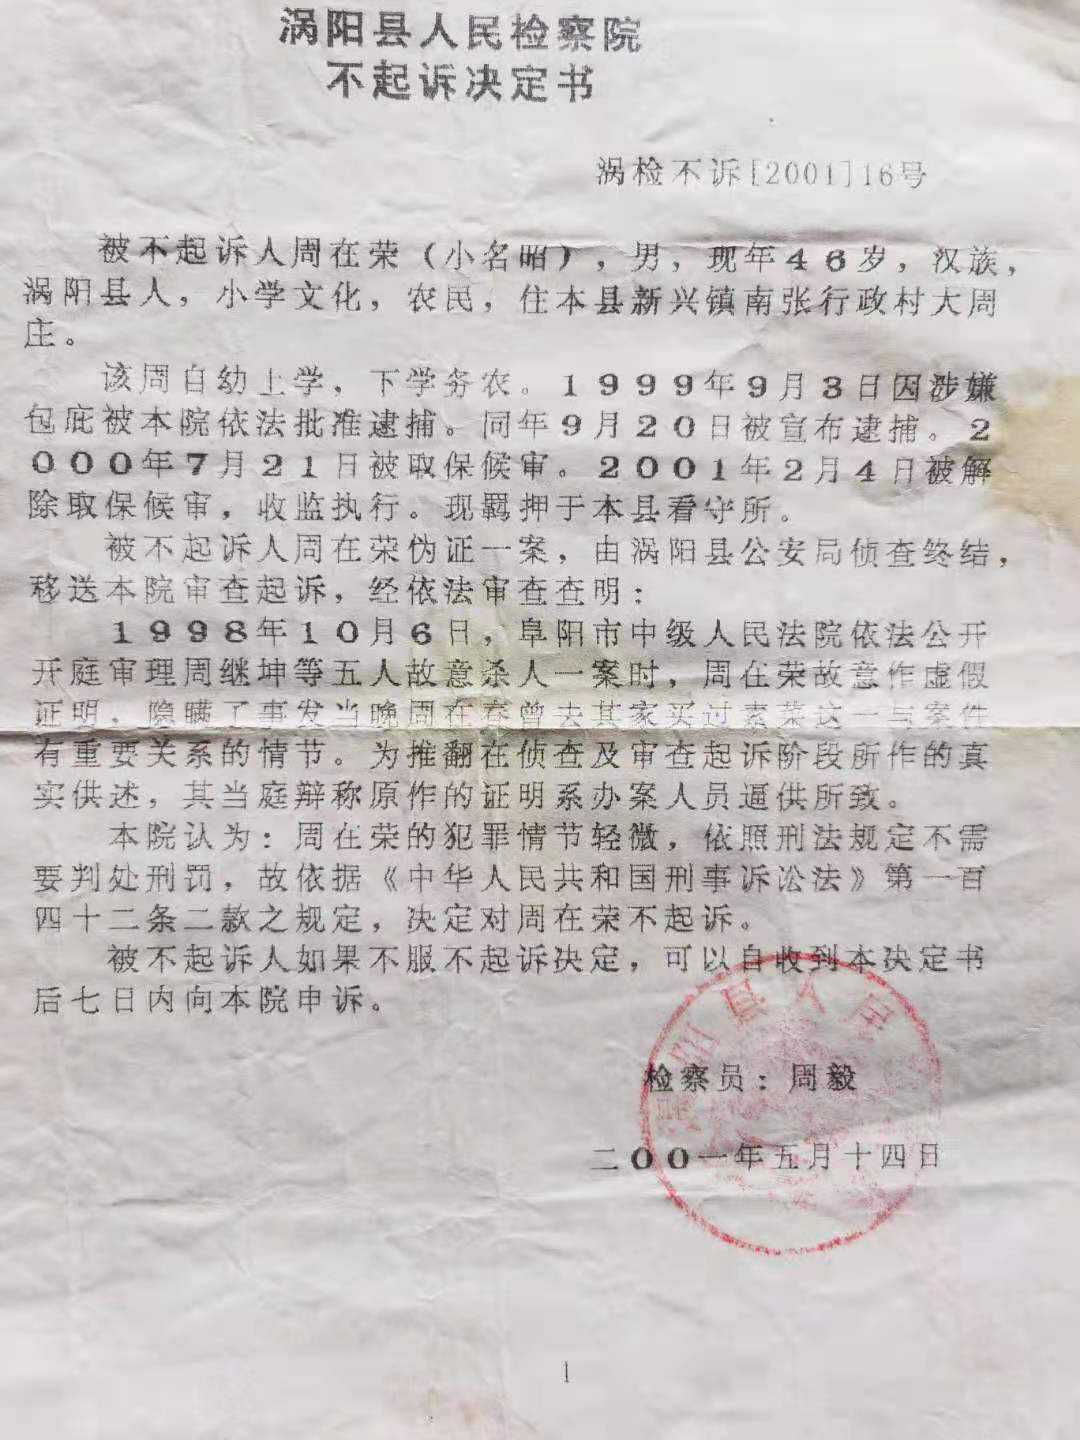 涡阳县人民检察院
不起诉决定书
涡检不诉[2001]16号
被不起诉人周在荣（小名昭），男，现年46岁，汉族，
涡阳县人，小学文化，农民，住本县新兴镇南张行政村大周
庄。
该周自幼上学，下学务农。1999年9月3日因涉嫌
包庇被本院依法批准逮捕。同年9月20日被宣布逮捕。2
000年7月21日被取保候审。2001年2月4日被解
除取保候审，收监执行。现羁押于本县看守所。
被不起诉人周在荣伪证一案，由涡阳县公安局侦查终结，
移送本院审查起诉，经依法审查查明：
1998年10月6日，阜阳市中级人民法院依法公开
开庭审理周继坤等五人故意杀人一案时，周在荣故意作虚假
证明，隐瞒了事发当晚周在春曾去其家买过素菜这一与案件
有重要关系的情节。为推翻在侦查及审查起诉阶段所作的真
实供述，其当庭辩称原作的证明系办案人员逼供所致。
本院认为：周在荣的犯罪情节轻微，依照刑法规定不需
要判处刑罚，故依据《中华人民共和国刑事诉讼法》第一百
四十二条二款之规定，决定对周在荣不起诉。
被不起诉人如果不服不起诉决定，可以自收到本决定书
后七日内向本院申诉。
阳县人民
检察员：周毅
二00一年五月十四日
1